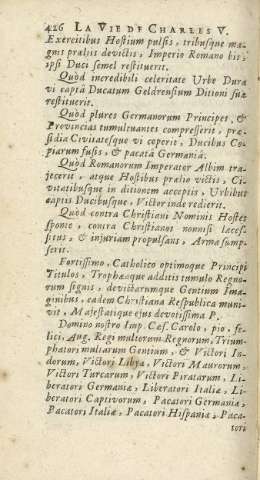 426 LA VIE DE CHARLES V.
Exercitibus Hostium pulsis, tribusque ma-
gnis præliis devictis, Imperio Romano his,
ipsi Duci semel restituerit.
Quòd incredibili celeritate Urbe Dura
vi captâ Ducatum Geldrensium Ditioni suæ
restituerit.
Quòd plures Germanorum Principes, &
Provincias tumultuantes compresserit, præ-
sidia Civitatesque vi coperit, Ducibus Co-
piarum fusis, & pacatâ Germaniâ.
Quòd Romanorum Imperator Albim tra-
jecerit, atque Hostibus prælio victis, Ci-
vitatibusque in ditionem acceptis, Urbibus
captis Ducibusque, Victor inde redierit.
Quòd contra Christiani Nominis Hostes
sponte, contra Christianos nonnisi laces-
situs, & injuriam propulsans, Arma sump-
serit.
Fortissimo, Catholico optimoque Principi
Titulos, Trophæaque additis tumulo Regno-
rum signis, devictarumque Gentium Ima-
ginibus, eadem Christiana Respublica muni-
vit, Majestatique ejus devotissima P.
Domino nostro Imp. Cæs. Carolo, pio, fe-
lici, Aug. Regi multorum Regnorum, Trium-
phatori multarum Gentium, & Victori In-
dorum, Victori Libya, Victori Maurorum,
Victori Turcarum, Victori Piratarum, Li-
beratori Germaniæ, Liberatori Italiæ, Li-
beratori Captivorum, Pacatori Germaniæ,
Pacatori Italiæ, Pacatori Hispaniæ, Paca-
tori